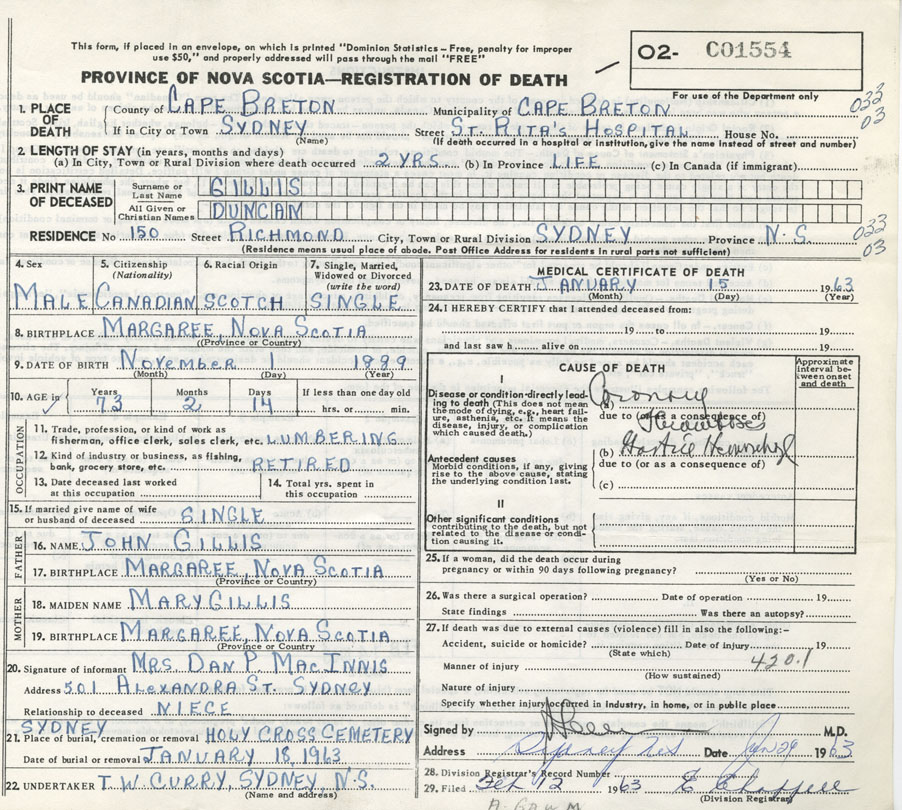 This form, if placed in an envelope, on which is printed "Dominion Statistics – Free, penalty for improper
use $50," and properly addressed will pass through the mail "FREE"
02- C01554
PROVINCE OF NOVA SCOTIA—REGISTRATION OF DEATH
For use of the Department only
1. PLACE OF DEATH
County of CAPE BRETON Municipality of CAPE BRETON 033
If in City or Town SYDNEY Street ST. RITA'S HOSPITAL House No. 03
(Name) (If death occurred in a hospital or institution, give the name instead of street and number)
2. LENGTH OF STAY (in years, months and days)
(a) In City, Town or Rural Division where death occurred 2 YRS (b) In Province LIFE (c) In Canada (if immigrant)
3. PRINT NAME OF DECEASED
Surname or Last Name GILLIS
All Given or Christian Names DUNCAN
RESIDENCE No 150 Street RICHMOND City, Town or Rural Division SYDNEY Province N.S. 033
(Residence means usual place of abode. Post Office Address for residents in rural parts not sufficient) 03
4. Sex 5. Citizenship 6. Racial Origin 7. Single, Married,
(Nationality) Widowed or Divorced
(write the word)
MALE CANADIAN SCOTCH SINGLE
8. BIRTHPLACE MARGAREE, NOVA SCOTIA
(Province or Country)
9. DATE OF BIRTH NOVEMBER 1 1889
(Month) (Day) (Year)
10. AGE in Years Months Days If less than one day old
73 2 14 hrs. or min.
OCCUPATION
11. Trade, profession, or kind of work as
fisherman, office clerk, sales clerk, etc. LUMBERING
12. Kind of industry or business, as fishing,
bank, grocery store, etc. RETIRED
13. Date deceased last worked at this occupation
14. Total yrs. spent in this occupation
15. If married give name of wife
or husband of deceased SINGLE
FATHER
16. NAME JOHN GILLIS
17. BIRTHPLACE MARGAREE, NOVA SCOTIA
(Province or Country)
MOTHER
18. MAIDEN NAME MARY GILLIS
19. BIRTHPLACE MARGAREE, NOVA SCOTIA
(Province or Country)
20. Signature of informant MRS DAN P. MACINNIS
Address 501 ALEXANDRA ST. SYDNEY
Relationship to deceased NIECE
SYDNEY
21. Place of burial, cremation or removal HOLY CROSS CEMETERY
Date of burial or removal JANUARY 18, 1963
22. UNDERTAKER T.W. CURRY, SYDNEY, N.S.
(Name and address)
MEDICAL CERTIFICATE OF DEATH
23. DATE OF DEATH JANUARY 15 1963
(Month) (Day) (Year)
24. I HEREBY CERTIFY that I attended deceased from:
19 to 19
and last saw h alive on 19
CAUSE OF DEATH
Approximate interval between onset and death
I
Disease or condition directly leading to death (This does not mean
the mode of dying, e.g., heart failure, asthenia, etc. It means the
disease, injury, or complication
which caused death.)
(a) Coronary
due to (or as a consequence of)
Thrombosis
Antecedent causes
Morbid conditions, if any, giving
rise to the above cause, stating
the underlying condition last.
(b) Gastric Hemorrhage
due to (or as a consequence of)
(c)
II
Other significant conditions
contributing to the death, but not
related to the disease or condition
causing it.
25. If a woman, did the death occur during
pregnancy or within 90 days following pregnancy?
(Yes or No)
26. Was there a surgical operation? Date of operation 19
State findings Was there an autopsy?
27. If death was due to external causes (violence) fill in also the following:-
Accident, suicide or homicide? Date of injury 19
(State which)
Manner of injury 420.1
(How sustained)
Nature of injury
Specify whether injury occurred in industry, in home, or in public place
Signed by M.D.
Address Sydney NS Date Jan 29 1963
28. Division Registrar's Record Number
29. Filed Feb 12 1963 E Chappell
(Division Registrar)